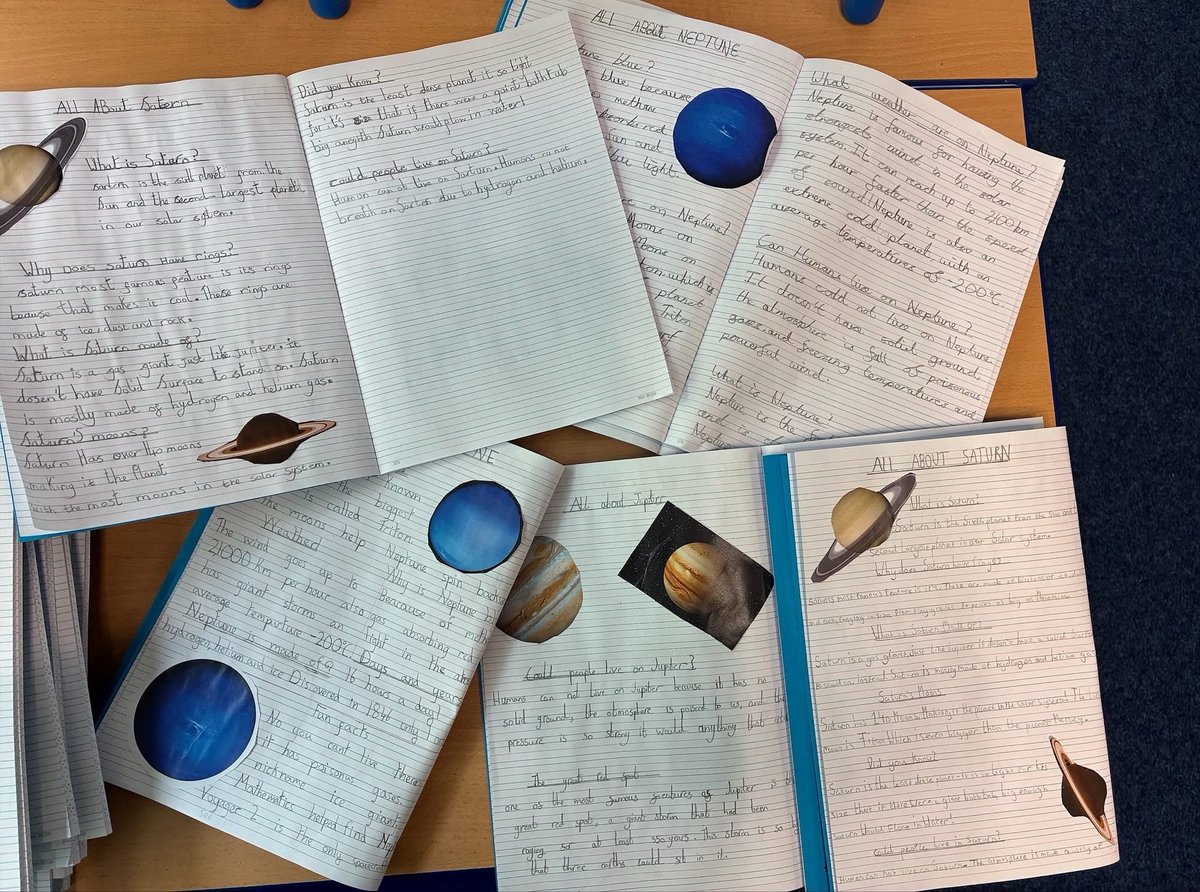 All About Saturn
What is Saturn?
saturn is the sixth planet from the
Sun and the second-largest planet
in our solar system.
Why Does saturn Have rings?
saturn most famous feature is it's rings
because that makes it cool. These rings are
made of ice, dust and rock.
What is Saturn made of?
Saturn is a gas giant just like jupiter. it
dosen't have Solid Surface to stand on. Saturn
is mostly made of hydrogen and helium gas.
Saturn Has over 140 moons
making it the Planet
with the most moons in the solar system.
Did you Know?
Saturn is the least dense planet it so light
for it's that if there were a gaint bathtub
big anogth Saturn would flow in water!
could people live on Saturn?
Human can at live on Saturn. Humans can not
breath on Saturn due to hydrogen and helium.
ALL ABOUT NEPTUNE
tune blue?
blue, because
methane
sun and
blue light.
re on Neptune?
Moons on
on
ton which is
planet
Triton
What weather are on Neptune?
Neptune is famous for having the
strongest wind in the solar
system. It can reach up to 2,100 km
per hour faster than the speed
of sound! Neptune is also an
extreme cold planet, with an
average temperatures of -200°C.
Can Humans live on Neptune?
Humans cold not live on Neptune.
It doesn't have solid ground,
the atmosphere is full of poisonous
gases, and freezing temparatures and
powerful wind.
What is Neptune?
Neptune is the
and is
Neptun
NE
known
biggest
is called Triton.
the moons help Neptune spin
Weather! Why is Neptune
The wind goes up to Bearause of
2,1000 Km per hour also gas absorbing red
has giant storms an light in the
average tempucture -200°C Days and years
Neptune is made of? 16 hours a day!
hydrogen, helium and ice Discovered in 1846 only 1
Fun facts
No you cant live there
it has poisonas gases.
nickname ice giant.
Mathematics helped find N
Voyager 2 is the only spacecra
All about Jupiter
Could people live on Jupiter?
Humans can not live on Jupiter because it has no
solid ground, the atmosphere is poised to us, and the
pressure is so strong it would anything that
The great red spot
one os the most famous feceatures of Jupiter is t
great red spot, a giant storm that had been
raging sor at least years. This storm is so
that three earths could sit in it.
ALL ABOUT SATURN
What is Saturn?
Saturn is the Sixth planet From the Sun and
second largest planet in our Solar system.
Why does Saturn have rings?
What is Saturn Made of?
Saturn is a gas giant, Just like Jupiter it doesnt have a solid Surfa
to stand on, instead Saturn is mostly made of hydrogen and helium gas
Saturn's Moons
Saturn has 140 Moons, Making it the planet with solar system! The
Moon is Titan Which is even bigger than the planet Mercury.
Did you Know?
Saturn is the least dense planet. It is so light For it's
size that if there Were a giant bathtub, big enough
Saturn Would Float in Water!
Could people live on Saturn?
Human can not live on Saturn. The atmosphere is made mostly of